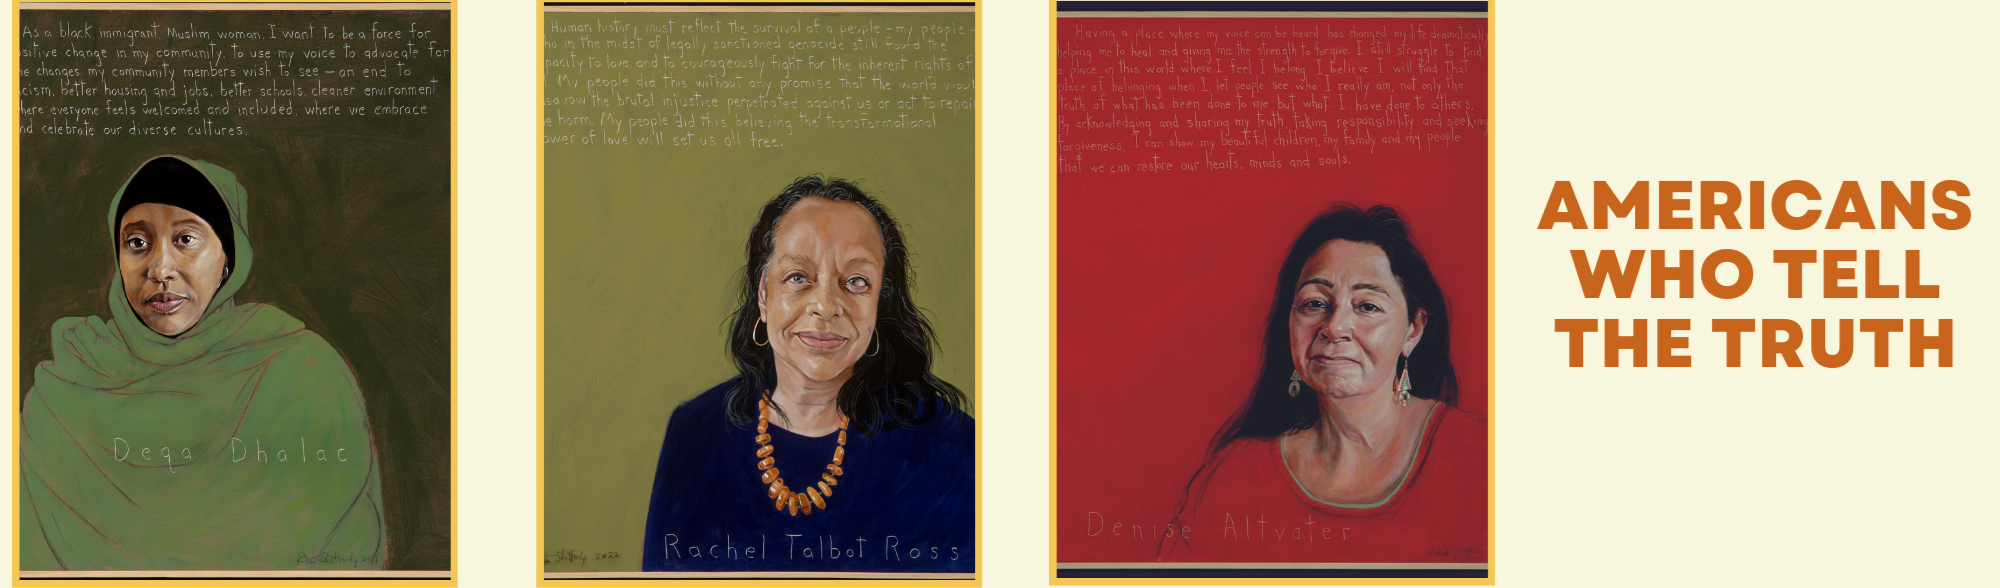 As a black, immigrant, Muslim woman, I want to be a force for
sitive change in my community, to use my voice to advocate for
he changes my community members wish to see – an end to
cism, better housing and jobs, better schools, cleaner environment
here everyone feels welcomed and included, where we embrace
nd celebrate our diverse cultures.
Deqa Dhalac
Human history must reflect the survival of a people – my people –
ho in the midst of legally sanctioned genocide still found the
pacity to love, and to courageously fight for the inherent rights of
. My people did this without any promise that the world woul
savow the brutal injustice perpetrated against us or act to repair
e harm. My people did this believing the transformational
ower of love will set us all free.
2022
Rachel Talbot Ross
Having a place where my voice can be heard has changed my life dramatically
helping me to heal and giving me the strength to forgive. I still struggle to find
a place in this world where I feel I belong. I believe I will find that
place of belonging when I let people see who I really am, not only the
truth of what has been done to me but what I have done to others.
By acknowledging and sharing my truth, taking responsibility and seeking
forgiveness, I can show my beautiful children, my family and my people
that we can restore our hearts, minds and souls.
Denise Altvater
AMERICANS
WHO TELL
THE TRUTH